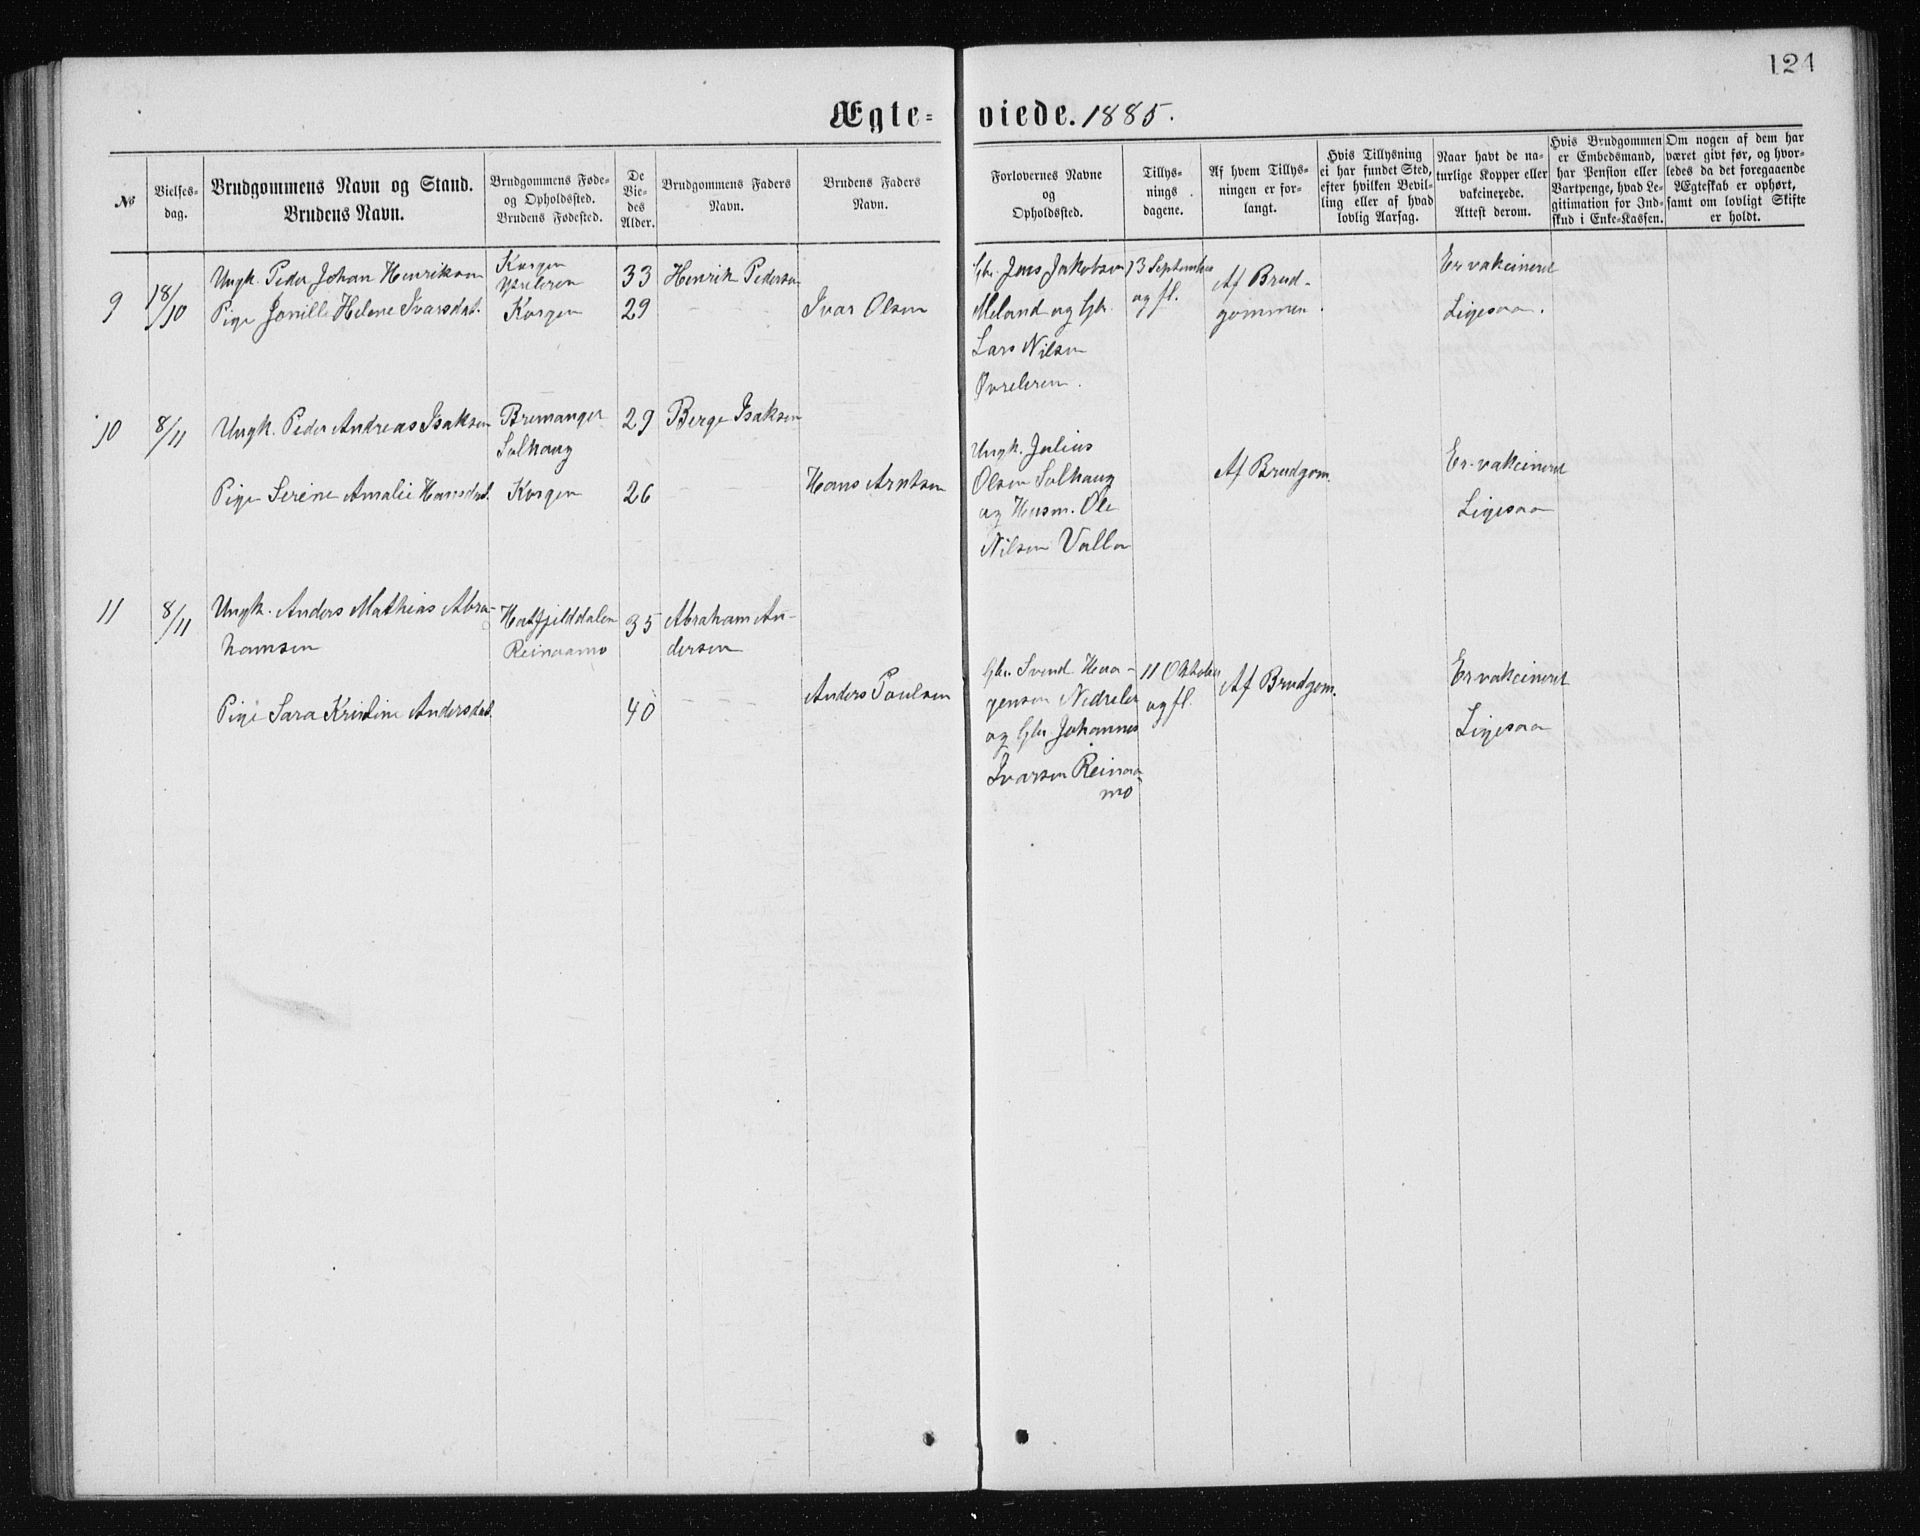 124
Ægte= viede. 1885.
№
Vielses-
dag.
Brudgommens Navn og Stand.
Brudens Navn.
Brudgommens Føde-
og Opholdssted.
Brudens Fødested.
De
Vie-
des
Alder.
Brudgommens Faders
Navn.
Brudens Faders
Navn.
Forlovernes Navne
og
Opholdssted.
Tillys-
nings
dagene.
Af hvem Tillys-
ningen er for-
langt.
Hvis Tillysning
ei har fundet Sted,
efter hvilken Bevil-
ling eller af hvad
lovlig Aarsag.
Naar havt de na-
turlige Kopper eller
vakcinerede.
Attest derom.
Hvis Brudgommen
er Embedsmand,
har Pension eller
Vartpenge, hvad Le-
gitimation for Ind-
skud i Enke-Kassen.
Om nogen af dem har
været givt før, og hvor-
ledes da det foregaaende
Ægteskab er ophørt,
samt om lovligt Skifte
er holdt.
9
18/10
Ungk. Peder Johan Henriksen
Pige Jonille Helene Ivarsdat.
Korgen
Korgen
33
29
Henrik Pedersen
- -
Ivar Olsen
Gbr. Jens Jakobsen
Meland og Gbr.
Lars Nilsen
Øvreleren.
13 September
og fl.
Af Brud-
gommen.
Er vakcineret
Ligesaa.
10
8/11
Ungk. Peder Andreas Isaksen
Pige Serine Amalie Hansdat.
Bremanger
Solhaug
Korgen
29
26
Berge Isaksen
- -
Hans Arntsen
Ungk. Julius
Olsen Solhaug
og Husm. Ole
Nilsen Valla
Af Brudgom.
Er vakcineret
Ligesaa
11
8/11
Ungk. Anders Mathias Abra-
hamsen
Pige Sara Kristine Andersdat.
Hatfjelddalen
Reinaamo
35
40
Abraham An-
dersen
- -
Anders Paulsen
Gbr. Svend Haa-
gensen Nedreler
og Gbr. Johannes
Ivarsen Reinaa-
mo
11 Oktober
og fl.
Af Brudgom.
Er vakcineret
Ligesaa